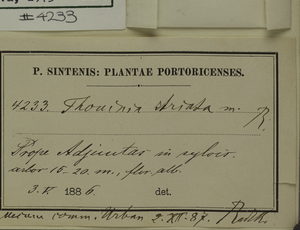 #4233
P. SINTENIS: PLANTAE PORTORICENSES.
4233. Thouinia striata m. R.
Prope Adjuntas in sylvis.
arbor 15-20 m., flor. alb.
3. VI 1886. det.
comm. Urban 2. XII. 87. Radlk.